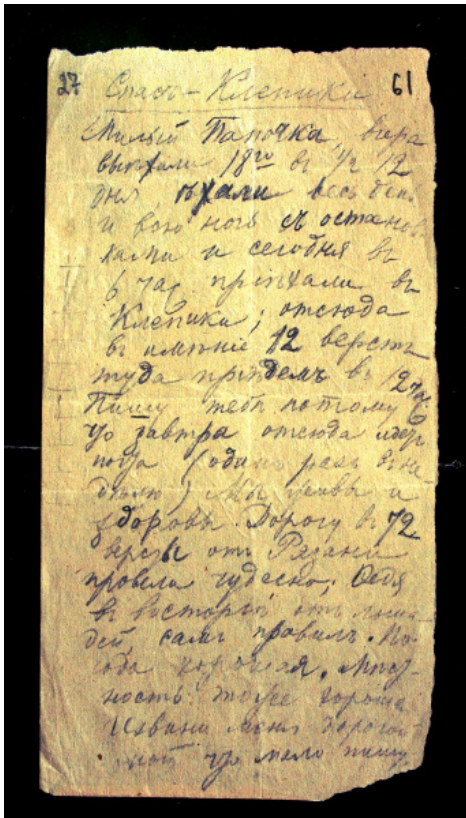 27 Спасъ-Клепики 61
Милый Папочка, вчера
выѣхали 18го въ 1/2 12
дня, ѣхали весь день
и всю ночь съ останов
ками и сегодня въ
6 час. пріѣхали въ
Клепики; отсюда
въ имѣніе 12 верстъ
туда пріѣдемъ въ 12 час.
Пишу тебѣ потому
что завтра отсюда идетъ
почта (одинъ разъ въ не-
дѣлю) Мы живы и
здоровы. Дорогу въ 72
версты отъ Рязани
провели чудесно; Федя
въ восторгѣ отъ лоша-
дей, самъ правилъ. По-
года хорошая. Мѣст-
ность тоже хороша
Извини меня дорогой
мой что мало пишу